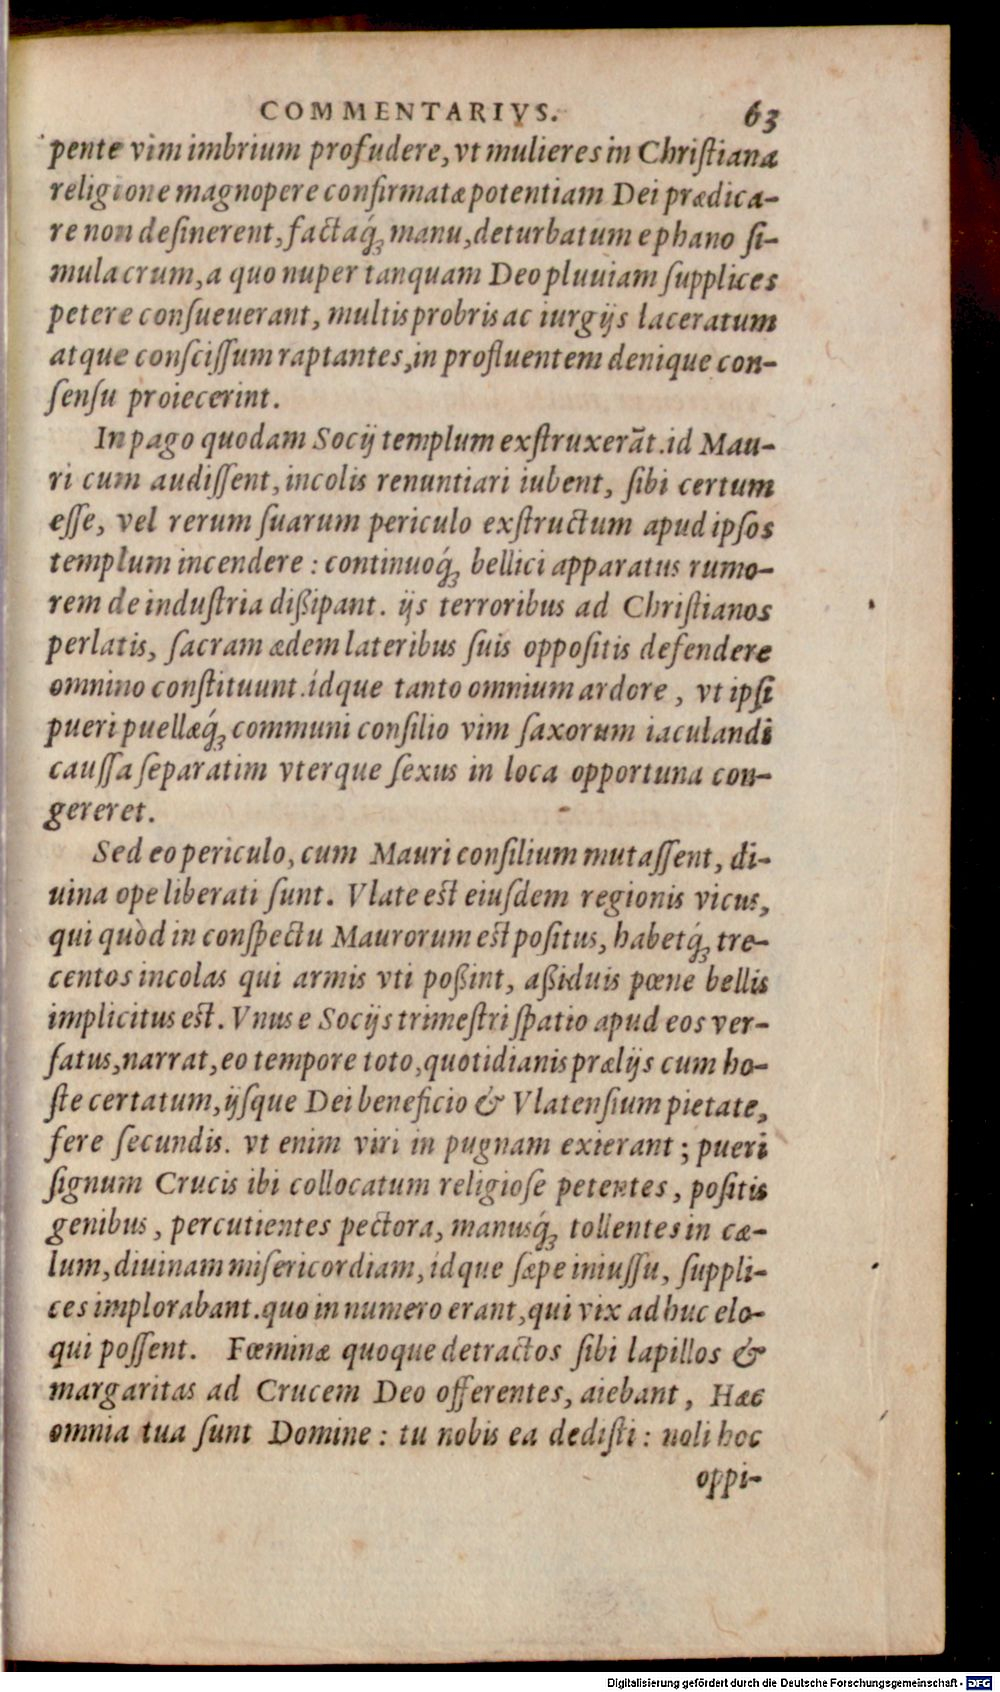 COMMENTARIVS. 63
pente vim imbrium profudere, vt mulieres in Chriſtiana
religione magnopere confirmatæ potentiam Dei prædica-
re non deſinerent, factaq́ꝫ manu, deturbatum e phano ſi-
mulacrum, a quo nuper tanquam Deo pluuiam ſupplices
petere conſueuerant, multis probris ac iurgijs laceratum
atque conſciſſum raptantes, in profluentem denique con-
ſenſu proiecerint.
In pago quodam Socij templum exſtruxerāt. id Mau-
ri cum audiſſent, incolis renuntiari iubent, ſibi certum
eſſe, vel rerum ſuarum periculo exſtructum apud ipſos
templum incendere : continuoq́ꝫ bellici apparatus rumo-
rem de induſtria dißipant. ijs terroribus ad Chriſtianos
perlatis, ſacram ædem lateribus ſuis oppoſitis defendere
omnino conſtituunt. idque tanto omnium ardore, vt ipſi
pueri puellæq́ꝫ communi conſilio vim ſaxorum iaculandi
cauſſa ſeparatim vterque ſexus in loca opportuna con-
gereret.
Sed eo periculo, cum Mauri conſilium mutaſſent, di-
uina ope liberati ſunt. Vlate eſt eiuſdem regionis vicus,
qui quòd in conſpectu Maurorum eſt poſitus, habetq́ꝫ tre-
centos incolas qui armis vti poßint, aßiduis pœne bellis
implicitus eſt. Vnus e Socijs trimeſtri ſpatio apud eos ver-
ſatus, narrat, eo tempore toto, quotidianis prælijs cum ho-
ſte certatum, ijſque Dei beneficio & Vlatenſium pietate,
fere ſecundis. vt enim viri in pugnam exierant ; pueri
ſignum Crucis ibi collocatum religioſe petentes, poſitis
genibus, percutientes pectora, manusq́ꝫ tollentes in cæ-
lum, diuinam miſericordiam, idque ſæpe iniuſſu, ſuppli-
ces implorabant. quo in numero erant, qui vix adhuc elo-
qui poſſent. Fœminæ quoque detractos ſibi lapillos &
margaritas ad Crucem Deo offerentes, aiebant, Hæc
omnia tua ſunt Domine : tu nobis ea dediſti : noli hoc
oppi-
Digitalisierung gefördert durch die Deutsche Forschungsgemeinschaft - DFG